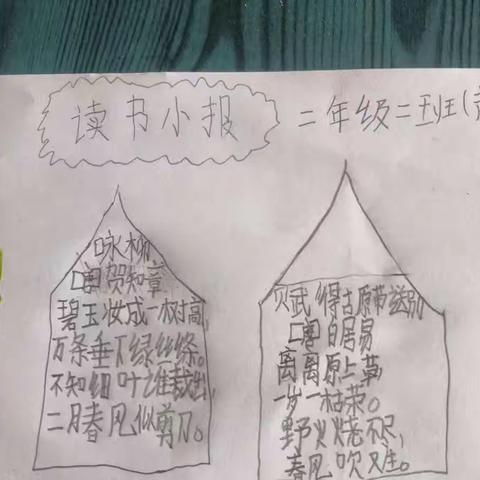 读书小报
二年级二班(
咏柳
[唐]贺知章
碧玉妆成一树高,
万条垂下绿丝绦。
不知细叶谁裁出,
二月春风似剪刀。
赋得古原草送别
[唐]白居易
离离原上草
一岁一枯荣。
野火烧不尽,
春风吹又生。